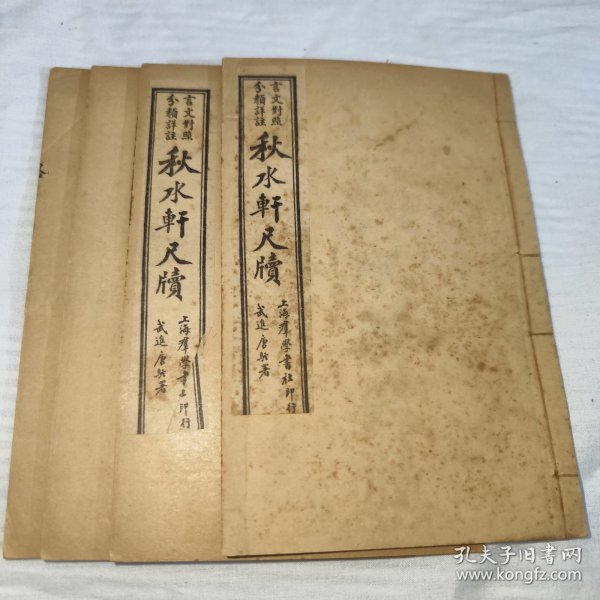 言文對照
分類詳註
秋水軒尺牘
上海羣學書社印行
武進唐駝著
言文對照
分類詳註
秋水軒尺牘
上海羣學書社印行
武進唐駝著
孔夫子旧书网
www.kongfz.com